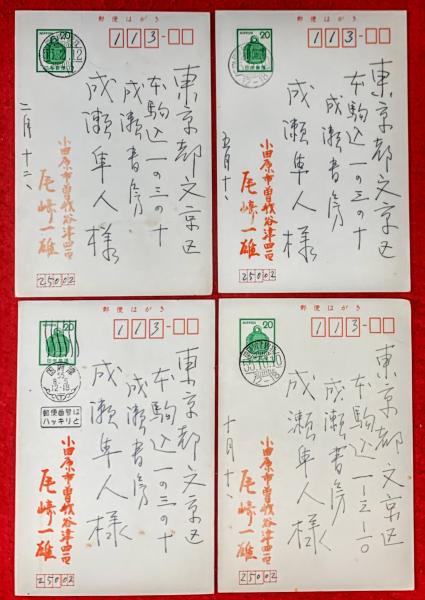 郵便はがき
20
113-
東京都文京区
本駒込一の三の十
成瀬書房
成瀬隼人様
二月十二、
小田原市曽我谷津四二〇
尾崎一雄
25002
郵便はがき
20
12-18
113-
東京都文京区
本駒込一の三の十
成瀬書房
成瀬隼人様
五月十、
小田原市曽我谷津四二〇
尾崎一雄
25002
郵便はがき
20
12-18
郵便番号は
ハッキリと
113-
東京都文京区
本駒込一の三の十
成瀬書房
成瀬隼人様
小田原市曽我谷津四二〇
尾崎一雄
25002
郵便はがき
20
12-18
113-
東京都文京区
本駒込一-三-一〇
成瀬書房
成瀬隼人様
十月十、
小田原市曽我谷津四二〇
尾崎一雄
25002